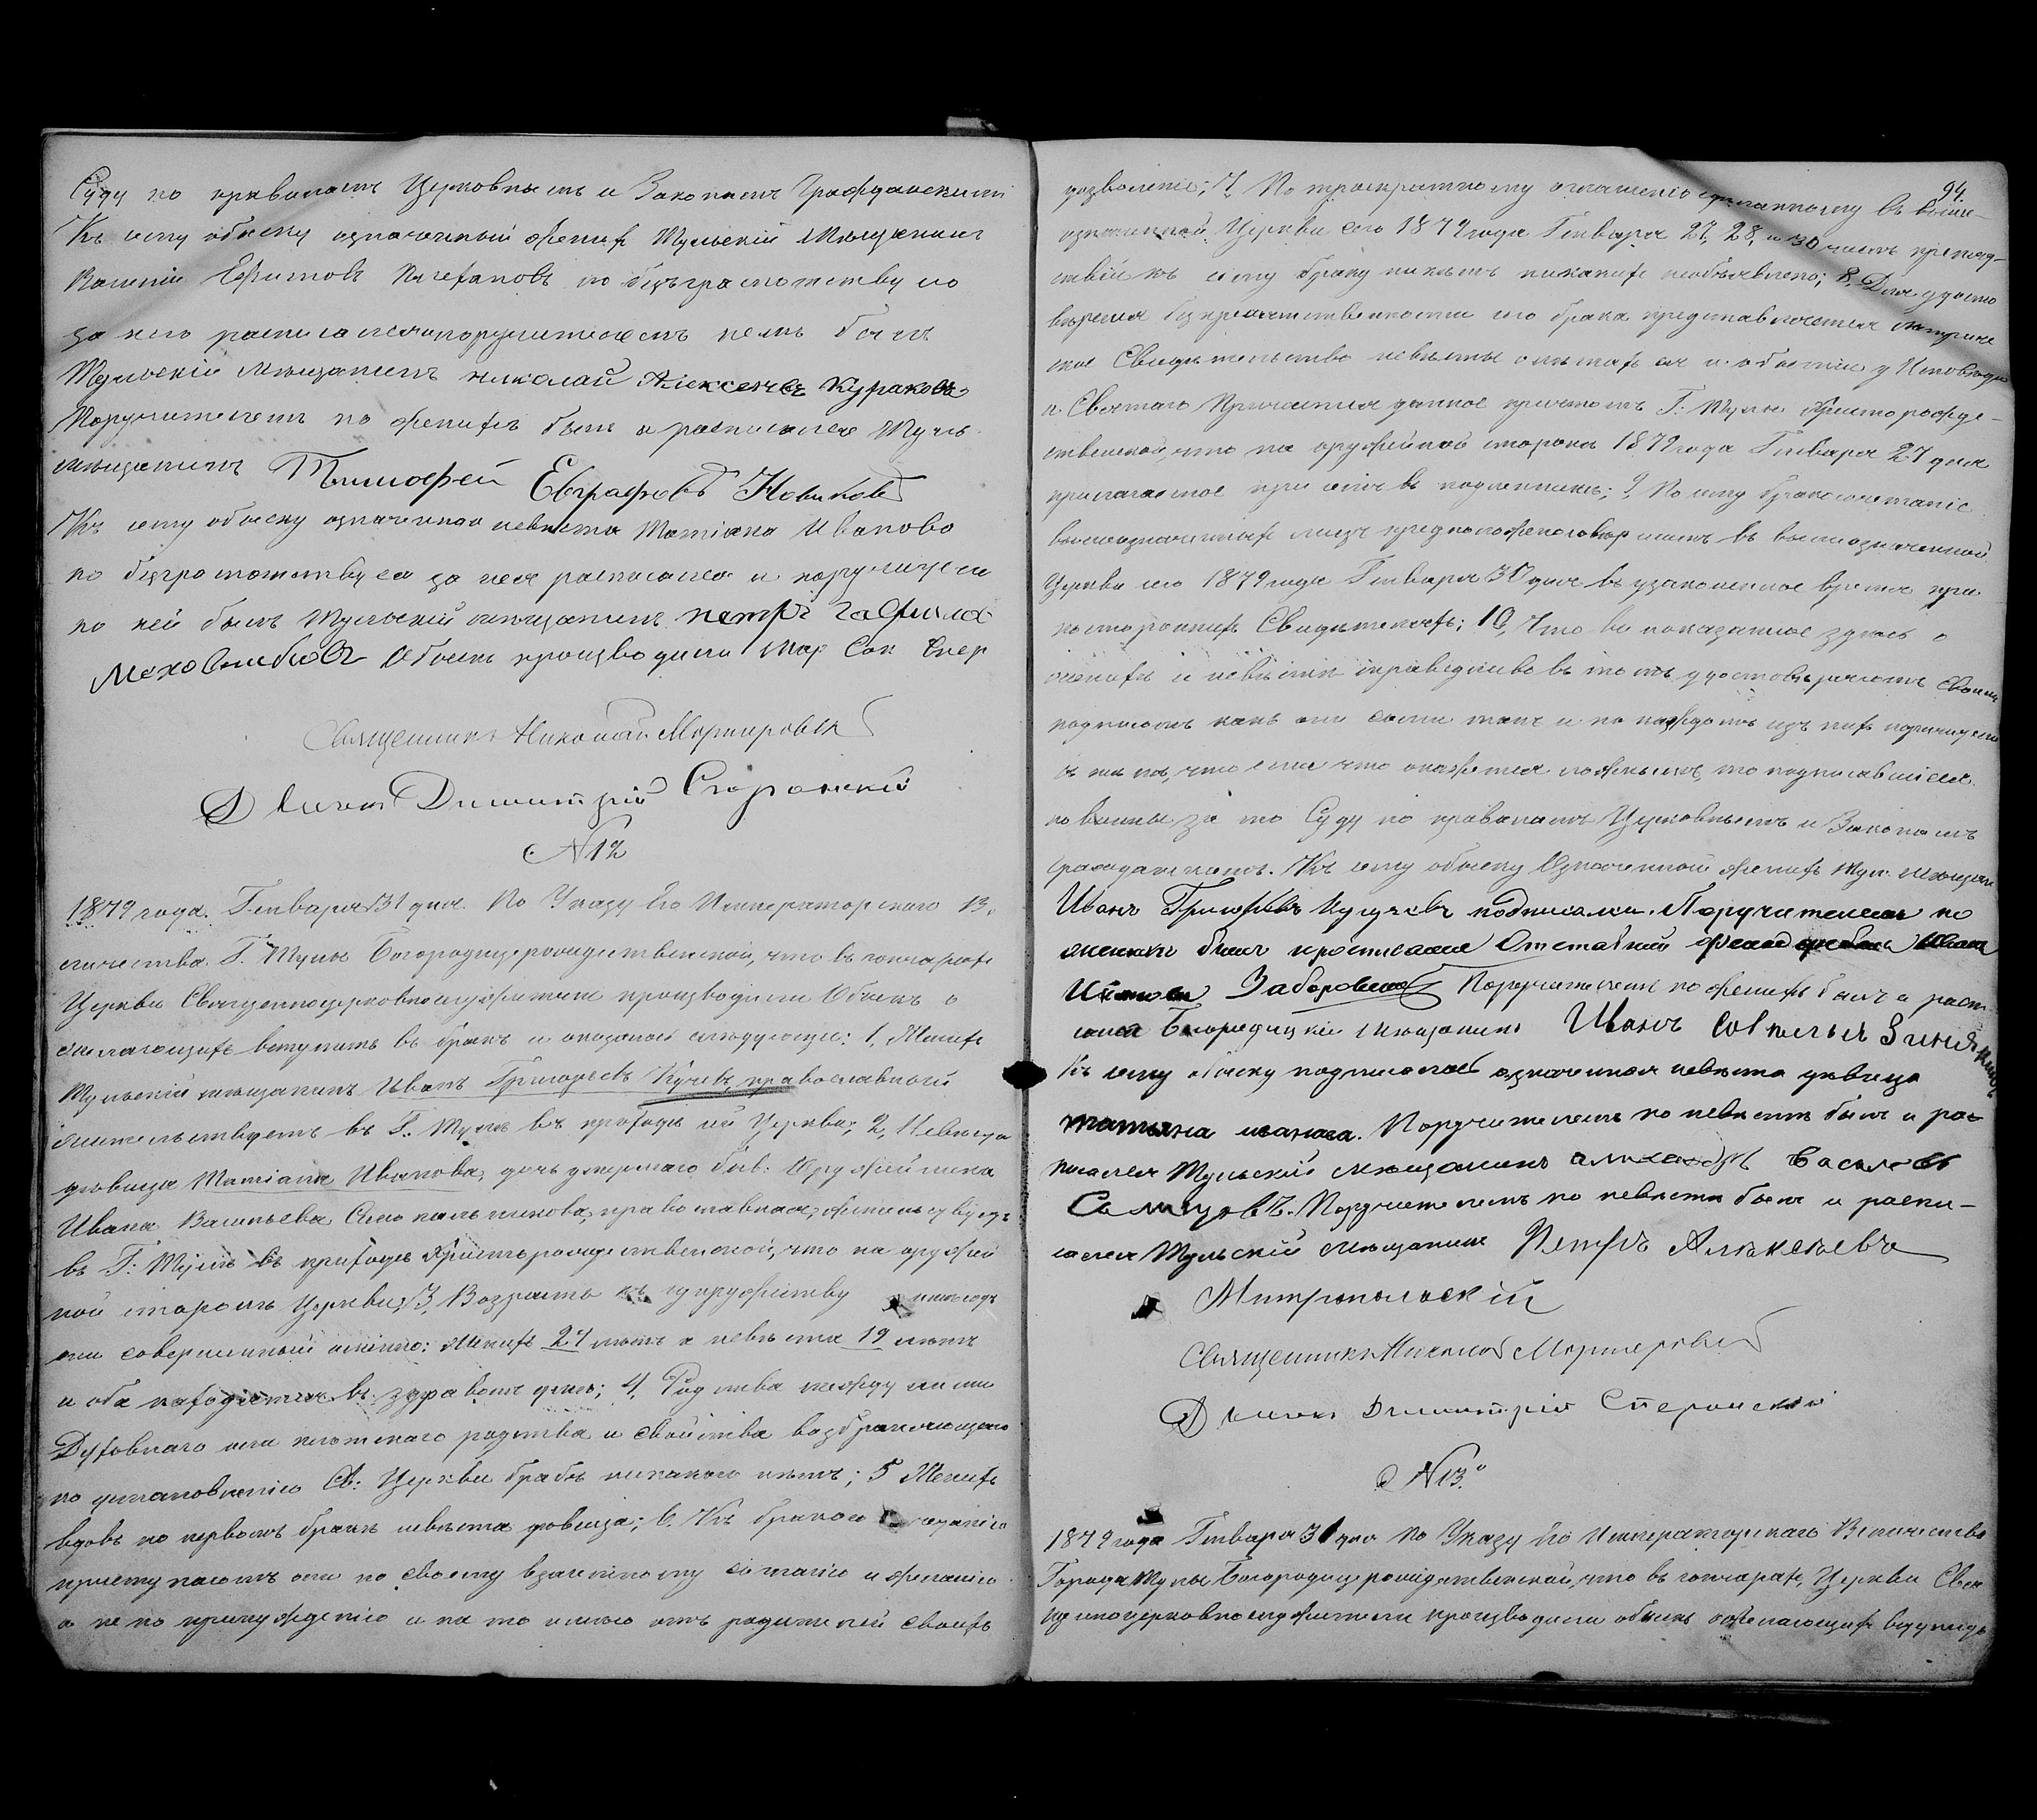 Суду по правиламъ Церковнымъ и Законамъ Гражданскимъ
Къ сему обыску означенный женихъ Тульскій Мѣщанинъ
Ефимовъ по безграмотству его
за него росписался и поручителемъ немъ былъ
Тульскій мѣщанинъ николай Алексеевъ Кураковъ
Поручителемъ по женихѣ былъ и росписался Туль.
мѣщанинъ Тимофей Евграфовъ Новиковъ
Къ сему обыску означенная невѣста Татіана Иванова
по безграмотству ея за нея росписался и поручителемъ
по ней былъ Тульскій мѣщанинъ петръ
Обыскъ производили
Священникъ Николай
Діаконъ Димитрій
№ 12
1879 года. Генваря 31 дня. По Указу Его Императорскаго Ве-
личества. Г. Тулы Богородицерождественской, что въ гончарахъ
Церкви Священноцерковнослужители производили Обыскъ о
желающихъ вступить въ бракъ и оказалось слѣдующее: 1, Женихъ
Тульскій мѣщанинъ Иванъ Григорьевъ православный
жительствуетъ въ Г. Тулѣ въ приходѣ сей Церкви; 2, Невѣста
дѣвица Татіана Иванова, дочь умершаго быв: Оружейника
Ивана Васильева православная, жительствуетъ
въ Г: Тулѣ въ приходѣ Христорождественской, что на оружей
ной сторонѣ Церкви; 3, Возрастъ къ супружеству имѣютъ
они совершенный именно: Женихъ 27 лѣтъ а невѣста 19 лѣтъ
и оба находятся въ здравомъ умѣ; 4, Родства между ими
Духовнаго или плотскаго родства и свойства возбраняющаго
по установленію Св: Церкви бракъ никакого нѣтъ; 5 Женихъ
вдовъ по первомъ бракѣ невѣста дѣвица; 6. Къ бракосочетанію
приступаютъ они по своему взаимному согласію и желанію
а не по принужденію и на то имѣютъ отъ родителей своихъ
94
дозволеніе; 7, По троекратному оглашенію сдѣланному въ выше-
означенной Церкви сего 1879 года Генваря 27, 28, и 30 числъ препят-
ствій къ сему браку никѣмъ никакихъ необъявлено; 8, Для удосто
вѣренія безпрепятственности его брака представляется метриче
ское Свидѣтельство невѣсты о лѣтахъ ея и о бытіи у Исповѣди
и Святаго Причастія данное причтомъ Г: Тулы Христорожде-
ственской, что на оружейной сторонѣ 1879 года Генваря 27 дня
прилагаемое при семъ въ подлинникѣ; 9, По сему бракосочетаніе
вышеозначенныхъ лицъ предположено совершить въ вышеозначенной
Церкви сего 1879 года Генваря 31 дня въ узаконенное время при
постороннихъ Свидѣтеляхъ; 10, Что все показанное здѣсь о
женихѣ и невѣстѣ справедливо въ томъ удостовѣряютъ своими
подписомъ какъ они сами такъ и по каждомъ изъ нихъ поручители
съ тѣмъ, что если что окажется ложнымъ, то подписавшіеся
повинны за то Суду по правиламъ Церковнымъ и Законамъ
гражданскимъ. Къ сему обыску Означенный женихъ Тул. мѣщан
Иванъ подписался. Поручителемъ по
женихѣ былъ и росписался Отставной
Заборовскій Поручителемъ по женихѣ былъ и роспи
сался Богородицкій мѣщанинъ Иванъ
Къ сему обыску подписалась означенная невѣста дѣвица
татьяна иванова. Поручителемъ по невѣстѣ былъ и рос-
писался Тульскій мѣщанинъ
Поручителемъ по невѣстѣ былъ и роспи-
сался Тульскій мѣщанинъ Петръ Алексѣевъ
Митропольскій
Священникъ Николай
Діаконъ Димитрій Сперанскій
№ 13.
1879 года Генваря 31 дня По Указу Его Императорскаго Величества
Города Тулы Богородицерождественской, что въ гончарахъ, Церкви Свящ
енноцерковнослужители производили обыскъ о желающихъ вступить